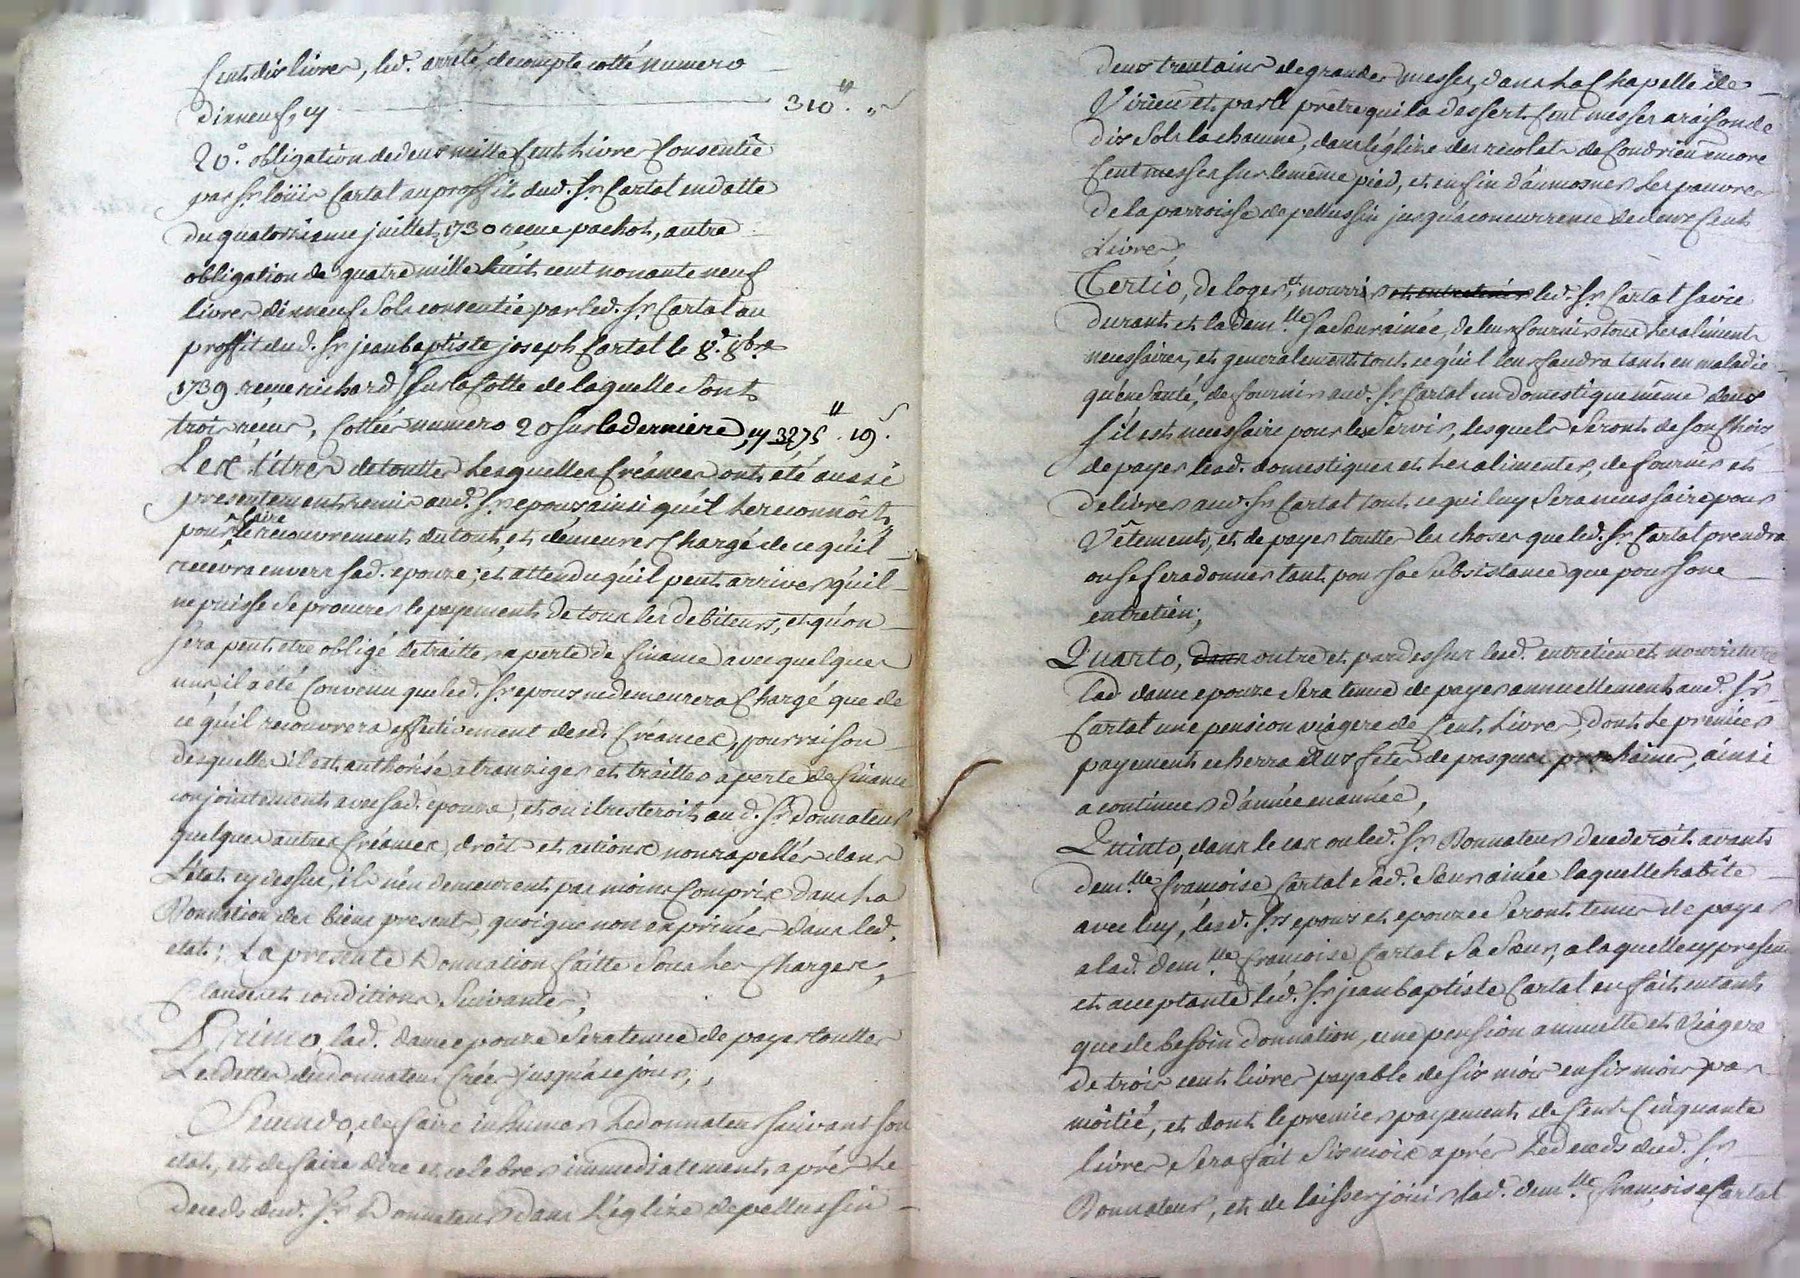 Cent dix livres, led. arrêté de compte cotté numero
dixneuf, cy 310.ᵗᵗ "ˢ
20.° obligation de deux mille Cent Livres Consentie
par Sr. loüis Cartal au proffit dud. Sr. Cartal en datte
du quatorzieme juillet 1730 receue pachot, autre
obligation de quatre mille huit cent nonante neuf
livres dixneuf Sols consentie par led. Sr. Cartal au
proffit dud. Sr. jean baptiste joseph Cartal le 8.e 8bre
1739 receue richard Sur la Cotte de laquelle Sont
trois receus, Cottées numero 20 Sur la derniere, cy 3275.ᵗᵗ 19.ˢ
Les titres de toutte Lesquelles Créances ont été aussi
presentement remis aud. Sr. epoux ainsi qu'il Le reconnoît,
pour faire le recouvrement du tout, et demeurer Chargé de ce qu'il
recevra envers Sad. epouze; et attendu qu'il peut arriver qu'il
ne puisse Se procurer le payement de tous les debiteurs, et qu'on
Sera peut etre obligé de traitter a perte de finance avec quelques
uns, il a été Convenu que led. Sr. epoux ne demeurera Chargé que de
ce qu'il recouvrera effectivement desd. Créances, pour raison
desquelles il est authorisé a transiger et traitter a perte de finance
conjointement avec Sad. epouze, et ou il resteroit aud. Sr. Donnateur
quelques autres Créances, droits et actions non rapellés dans
L'état cy dessus, ils n'en demeurent pas moins Compris dans La
Donnation des biens presents, quoique non exprimés dans led.
etat; La presente Donnation faitte Sous les Charges,
Clauses et conditions Suivantes,
Primo, lad. dame epouze Sera tenue de payer touttes
Les dettes dud. donnateur Créés jusqu'à ce jour,
Secundo, de faire inhumer Led. donnateur Suivant Son
etat, et de faire dire et celebrer immediatement après Le
deceds dud. Sr. Donnateur dans L'églize de pellussin
deux trentains de grandes messes, dans La Chapelle de
Virieu et par le prêtre qui la dessert Cent messes a raison de
dix Sols la chacune, dans l'églize des picolets de Condrieu encore
Cent messes sur le même pied, et enfin d'aumosner Les pauvres
de la parroisse de pellussin jusqu'à concurrence de deux Cent
Livres,
Tertio, de loger et nourrir et entretenir led. Sr. Cartal Sa vie
durant et la Dem.lle Sa Soeur ainée, de leur fournir tous les aliments
necessaires, et generalement tout ce qu'il leur faudra tant en maladie
qu'en Santé, de fournir aud. Sr. Cartal un domestique même deux
S'il est necessaire pour les Servir, lesquels Seront de Son Choix
de payer lesd. domestiques et les alimenter, de fournir et
delivrer aud. Sr. Cartal tout ce qui luy Sera necessaire pour
Vêtements, et de payer touttes les choses que led. Sr. Cartal prendra
ou Se fera donner tant pour Sa Subsistance que pour Son
entretien;
Quarto, dans outre et par dessus lesd. entretien et nourriture
lad. dame epouze Sera tenue de payer annuellement aud. Sr.
Cartal une pension viagere de Cent Livres, dont Le premier
payement echerra aux fêtes de pasques prochaines, ainsi
a continuer d'année en année,
Quinto, dans le cas ou led. Sr. Donnateur decederoit avant
dem.lle françoise Cartal Sad. Soeur ainée laquelle habite
avec luy, lesd. Srs. epoux et epouze Seront tenus de payer
a lad. dem.lle françoise Cartal Sa Soeur, a laquelle cy presente
et acceptante led. Sr. jean baptiste Cartal en fait, entant
que de besoin donnation, une pension annuelle et Viagere
de trois cent livres payable de six mois en six mois par
moitié, et dont le premier payement de Cent Cinquante
livres Sera fait Six mois après Le deceds dud. Sr.
Donnateur, et de laisser jouir lad. dem.lle françoise Cartal